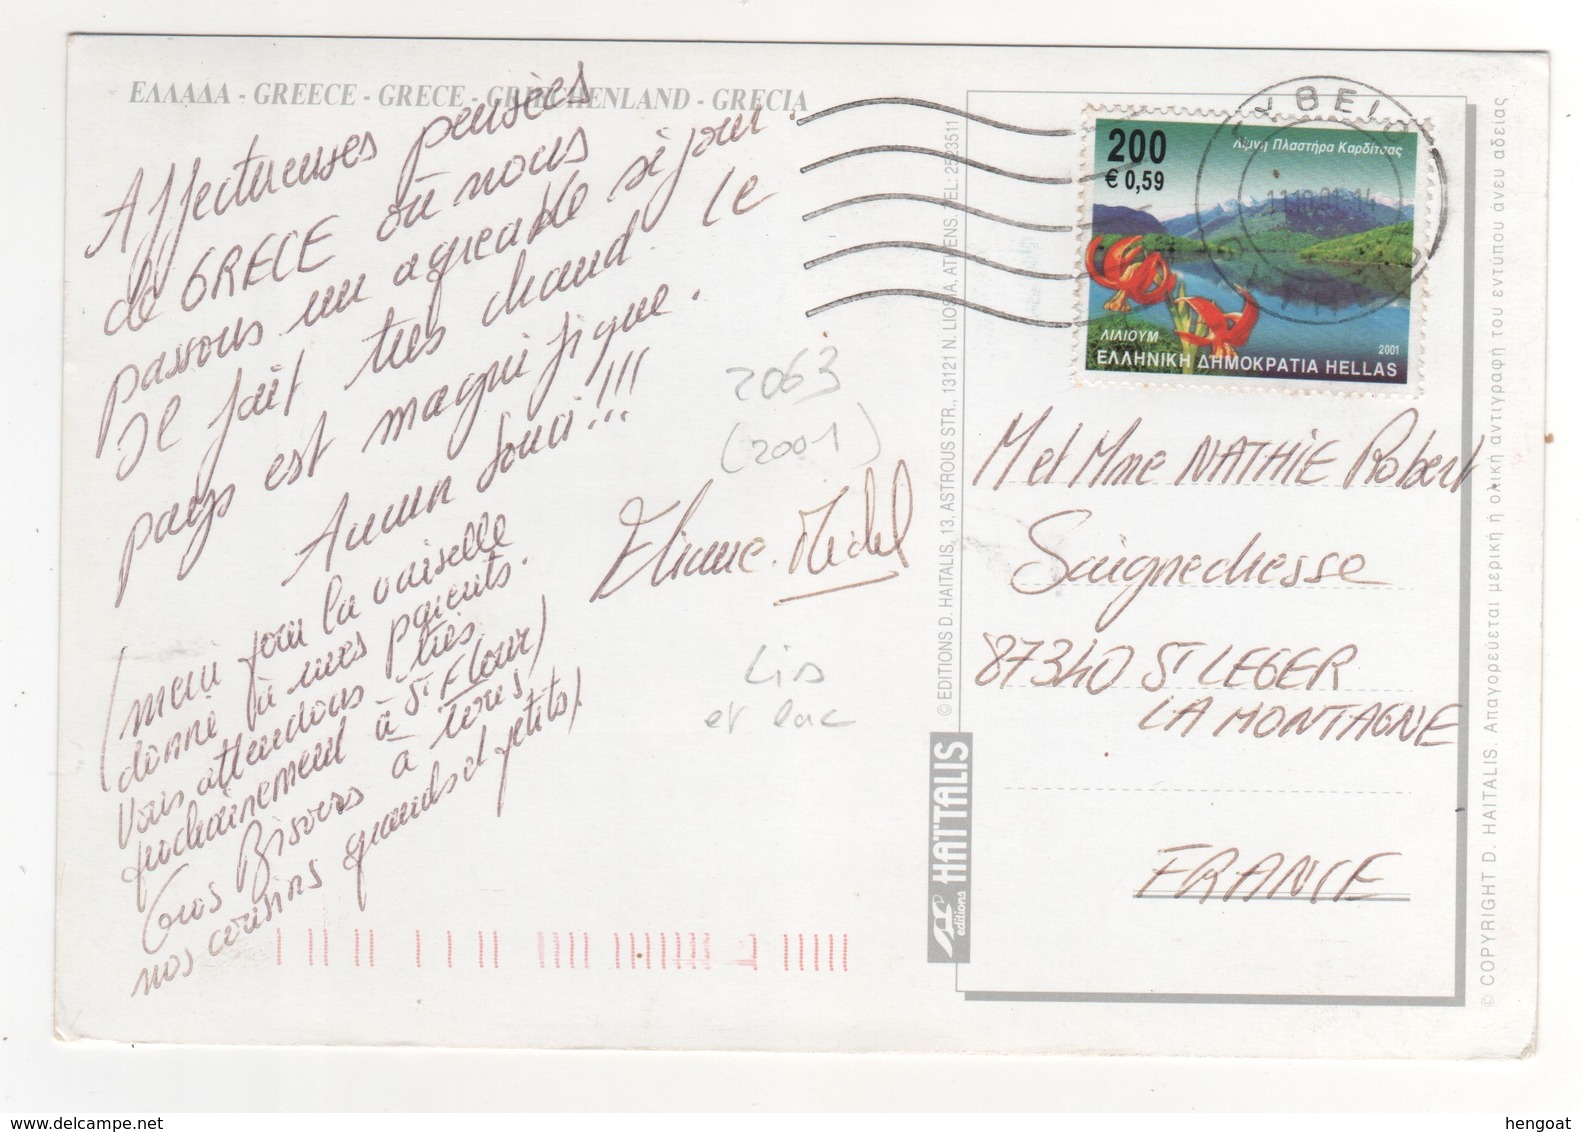 ΕΛΛΑΔΑ - GREECE - GRECE - GRIECHENLAND - GRECIA
Affectueuses pensées
de GRECE où nous
passons un agreable séjour.
Il fait très chaud. Le
pays est magnifique.
Aucun souci !!!
(merci pour la vaiselle
donné à mes parents.
Vous attendons très
prochainement à St Flour)
Gros Bisous à tous,
nos cousins grands et petits)
Eliane. Michel
2063
(2001)
Lis
et lac
© EDITIONS D. HAITALIS, 13, ASTROUS STR., 13121 N. LIOSIA, ATHENS. TEL: 2523511
HAÏTALIS
editions
200
€ 0,59
Λίμνη Πλαστήρα Καρδίτσας
ΛΙΛΙΟΥΜ
2001
ΕΛΛΗΝΙΚΗ ΔΗΜΟΚΡΑΤΙΑ HELLAS
M et Mme NATHIE Robert
Saignedresse
87340 ST LEGER
LA MONTAGNE
FRANCE
© COPYRIGHT D. HAITALIS. Απαγορεύεται μερική ή ολική αντιγραφή του εντύπου άνευ αδείας
www.delcampe.net
hengoat